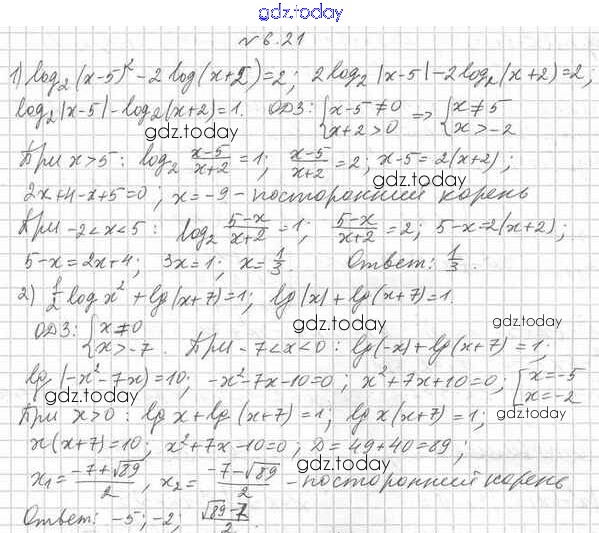 gdz.today
№6.21
1) log₂(x-5)² - 2 log(x+2) = 2; 2 log₂|x-5| - 2 log₂(x+2) = 2;
log₂|x-5| - log₂(x+2) = 1. ОДЗ: {x-5≠0 x+2>0 => {x≠5 x>-2
gdz.today
При x>5: log₂ (x-5)/(x+2) = 1; (x-5)/(x+2) = 2; x-5 = 2(x+2);
gdz.today
2x+4-x+5=0; x=-9 - посторонний корень
При -2<x<5: log₂ (5-x)/(x+2) = 1; (5-x)/(x+2) = 2; 5-x=2(x+2);
gdz.today
5-x=2x+4; 3x=1; x=1/3. Ответ: 1/3.
2) 1/2 log x² + lg(x+7)=1; lg|x| + lg(x+7)=1.
gdz.today
ОДЗ: {x≠0 x>-7. При -7<x<0: lg(-x)+lg(x+7)=1;
gdz.today
lg(-x²-7x)=10; -x²-7x-10=0; x²+7x+10=0; [x=-5 x=-2
gdz.today
gdz.today
При x>0: lg x + lg(x+7)=1; lg x(x+7)=1;
x(x+7)=10; x²+7x-10=0; D=49+40=89;
gdz.today
x₁=(-7+√89)/2, x₂=(-7-√89)/2 - посторонний корень
gdz.today
Ответ: -5; -2; (√89-7)/2.